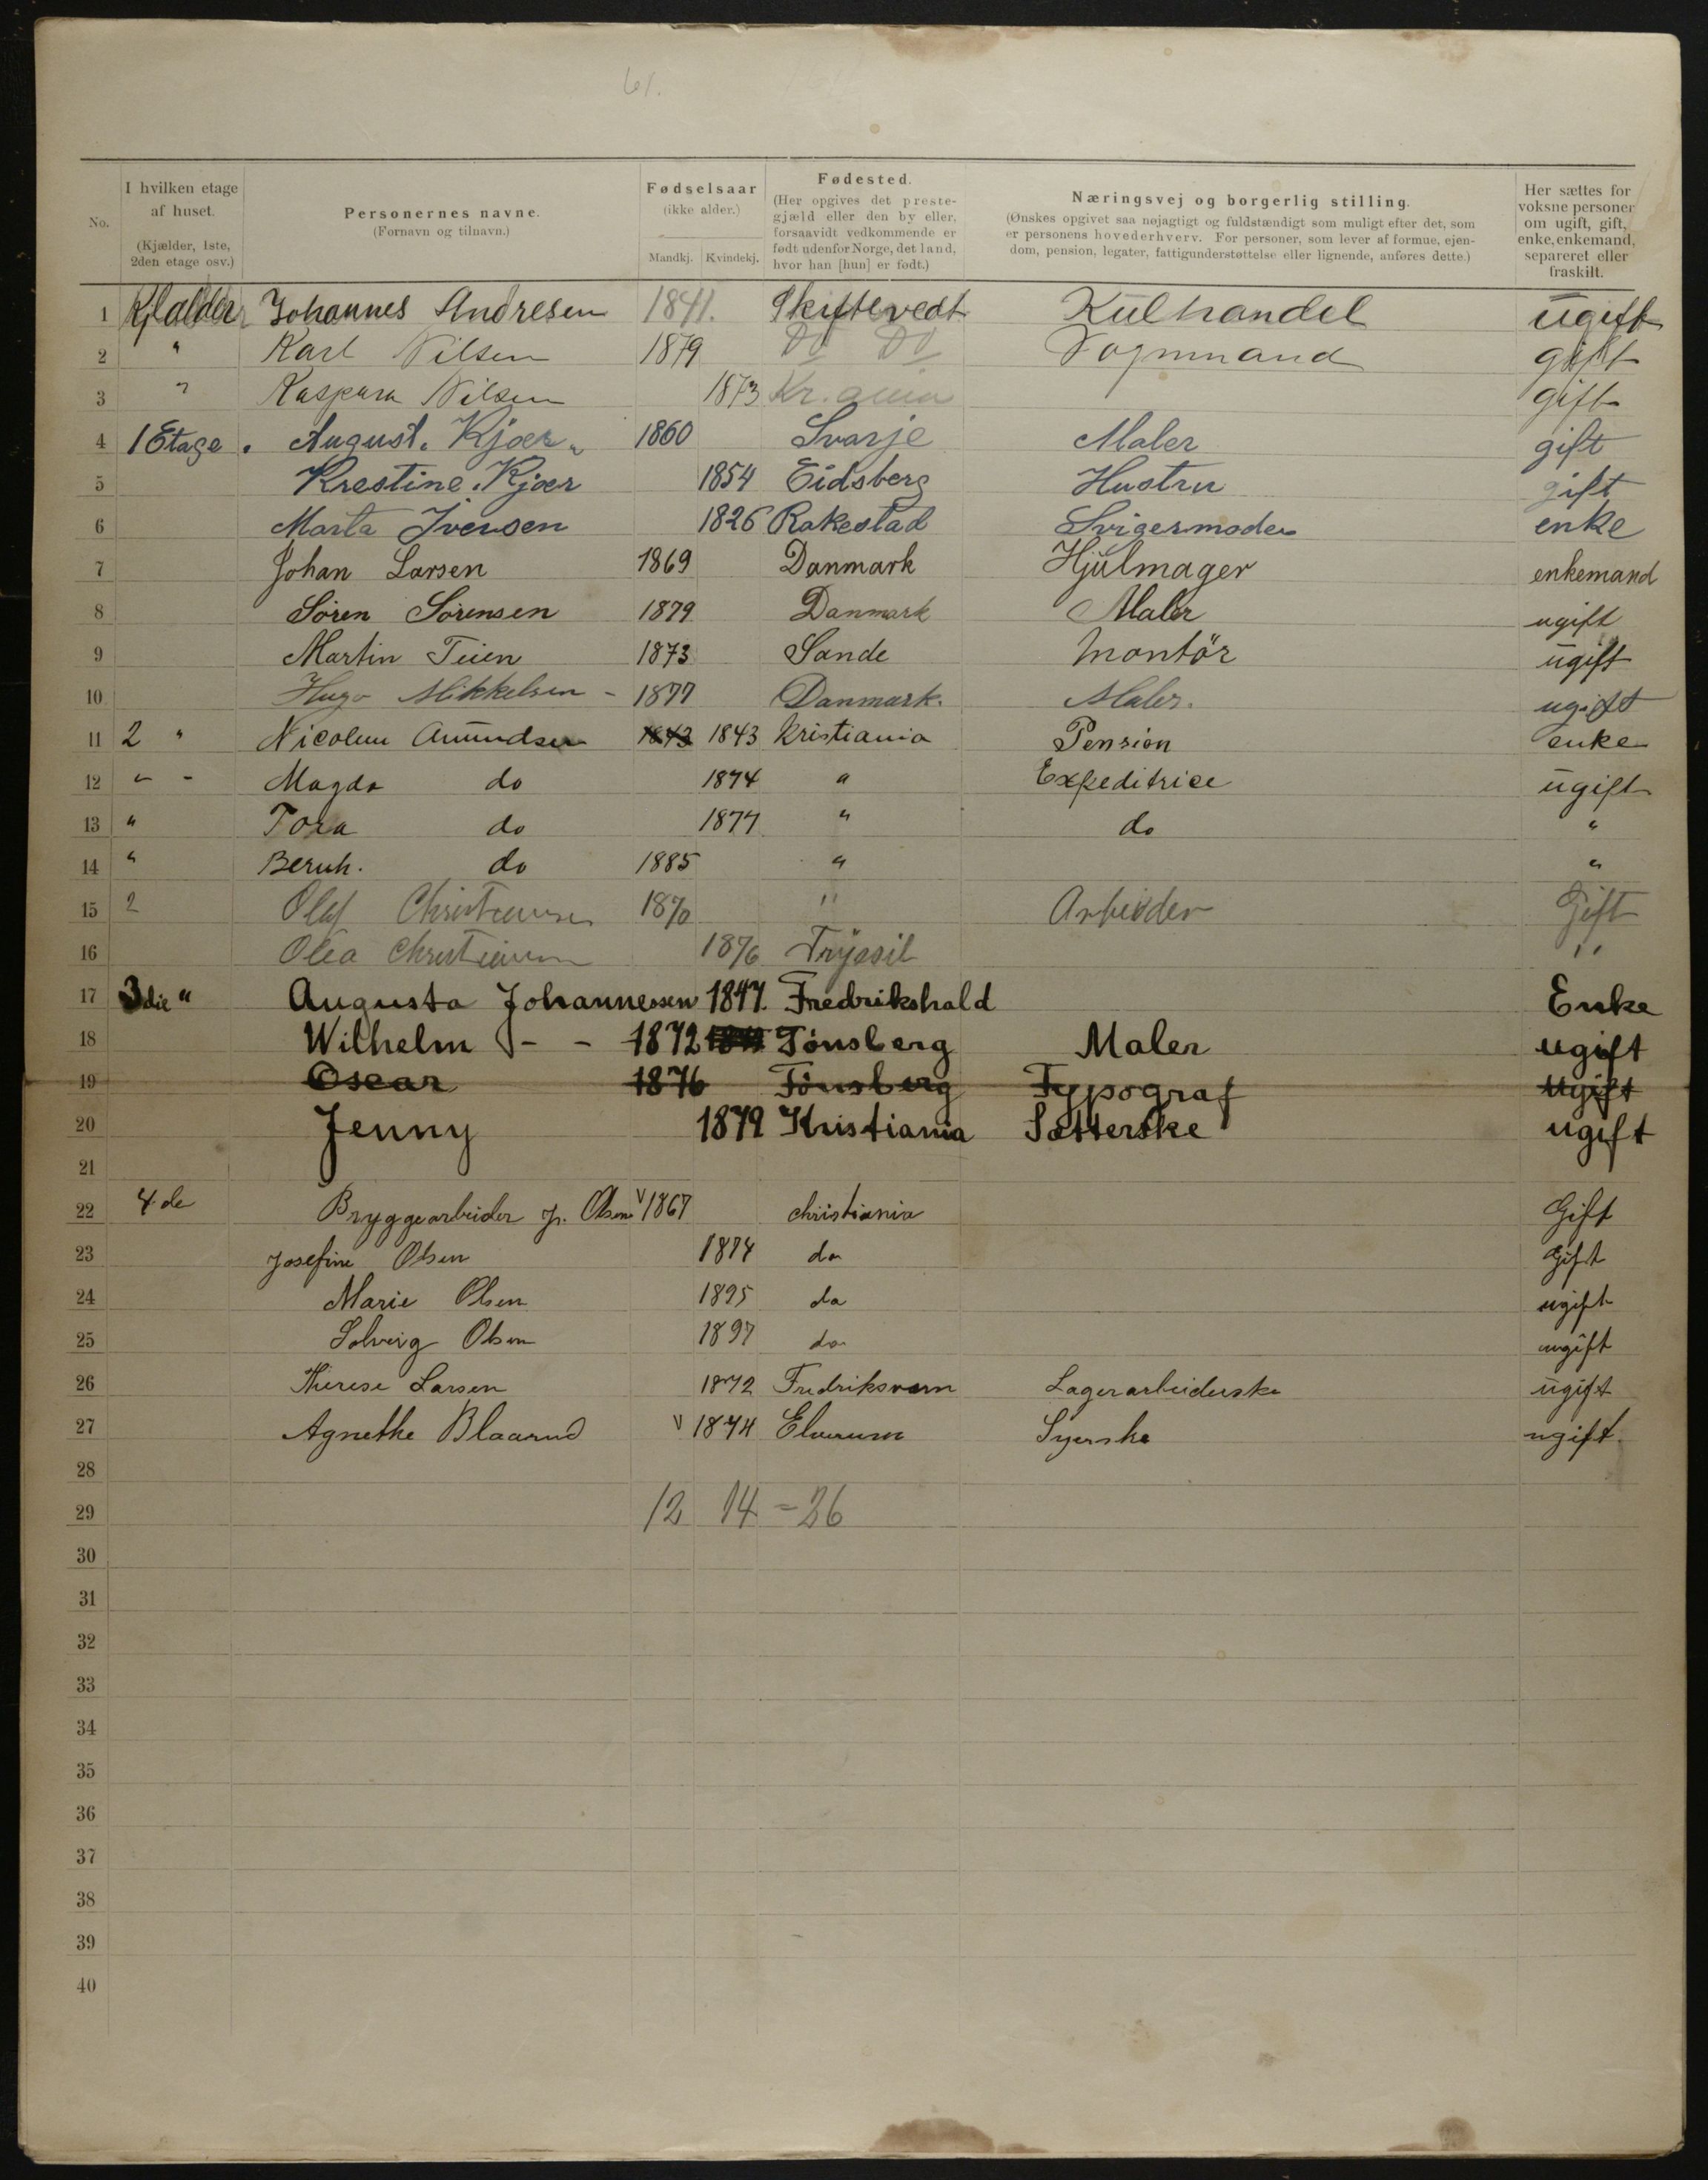 61.
No.
I hvilken etage af huset.
(Kjælder, 1ste, 2den etage osv.)
Personernes navne.
(Fornavn og tilnavn.)
Fødselsaar
(ikke alder.)
Mandkj. Kvindekj.
Fødested.
(Her opgives det prestegjæld eller den by eller, forsaavidt vedkommende er født udenfor Norge, det land, hvor han [hun] er født.)
Næringsvej og borgerlig stilling.
(Ønskes opgivet saa nøjagtigt og fuldstændigt som muligt efter det, som er personens hovederhverv. For personer, som lever af formue, ejendom, pension, legater, fattigunderstøttelse eller lignende, anføres dette.)
Her sættes for voksne personer om ugift, gift, enke, enkemand, separeret eller fraskilt.
1 Kjælder Johannes Andresen 1841. Skiftevedt Kulhandel ugift
2 " Karl Nilsen 1879 Do Do Vognmand gift
3 " Kaspara Nilsen 1873 Kr.ania gift
4 1 Etage. August. Kjær 1860 Svarje Maler gift
5 Krestine. Kjær 1854 Eidsberg Hustru gift
6 Marta Iversen 1826 Rakestad Svigermoder enke
7 Johan Larsen 1869 Danmark Hjulmager enkemand
8 Sören Sörensen 1879 Danmark Maler ugift
9 Martin Teien 1873 Sande Montör ugift
10 Hugo Mikkelsen - 1877 Danmark. Maler. ugift
11 2 " Nicoline Amundsen 1843 1843 Kristiania Pension enke
12 " - Magda do 1874 " Expeditrice ugift
13 " Tora do 1877 " do "
14 " Bernh. do 1885 " "
15 2 Olaf Christiansen 1870 " Arbeider Gift
16 Olea Christiansen 1876 Trysil "
17 3die " Augusta Johannessen 1847. Fredrikshald Enke
18 Wilhelm - - 1872 Tönsberg Maler ugift
19 Oscar 1876 Tönsberg Typograf ugift
20 Jenny 1879 Kristiania Sætterske ugift
21
22 4de Bryggearbeider J. Olsen V 1867 Christiania Gift
23 Josefine Olsen 1874 do Gift
24 Marie Olsen 1895 do ugift
25 Solveig Olsen 1897 do ugift
26 Therese Larsen 1872 Fredriksværn Lagerarbeiderske ugift
27 Agnethe Blaarud V 1874 Elverum Syerske ugift.
28
29 12 14 = 26
30
31
32
33
34
35
36
37
38
39
40